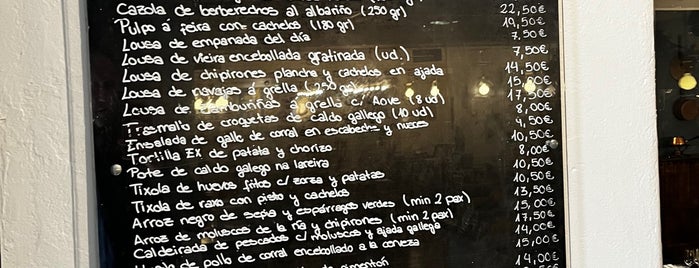 Cazola de berberechos al albariño (250 gr) 22,50€
Pulpo á feira con cachelos (180 gr) 19,50€
Lousa de empanada del día 7,50€
Lousa de vieira encebollada gratinada (ud.) 7,50€
Lousa de chipirones plancha y cachelos en ajada 14,50€
Lousa de navajas á grella (250 gr) 15,00€
Lousa de zamburiñas á grella c/ Aove (8 ud) 17,50€
Trasmallo de croquetas de caldo gallego (10 ud) 8,00€
4,50€
Ensalada de gallo de corral en escabeche y nueces 10,50€
Tortilla EX de patata y chorizo 8,00€
Pote de caldo galego na lareira 10,50€
Tixola de huevos fritos c/ zorza y patatas 10,50€
Tixola de raxo con pisto y cachelos 13,50€
Arroz negro de sepia y espárragos verdes (min 2 pax) 15,00€
Arroz de moluscos de la ría y chipirones (min 2 pax) 17,50€
Caldeirada de pescados c/ moluscos y ajada gallega 14,00€
de pollo de corral encebollado a la cerveza 15,00€
de pimentón 14,00€